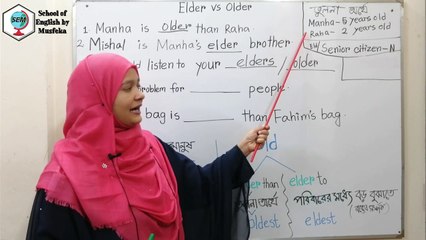 School of
English by
Musfeka
SEM
Elder vs Older
তুলনা অর্থে
Manha-5 years old
Raha- 2 years old
1 Manha is older than Raha
2. Mishal is Manha's elder brother
Senior citizen-N
ld listen to your elders / older
problem for people.
bag is than Fahim's bag.
than elder to
পরিবারের মধ্যে বড় বুঝাতে
oldest eldest